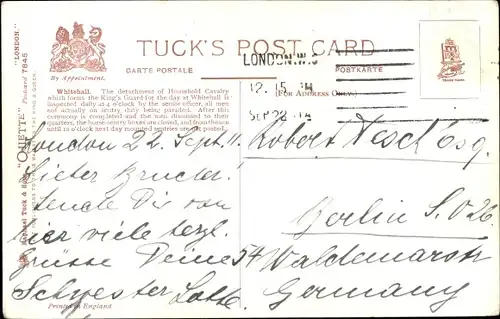 "LONDON."
Postcard 7845
"OILETTE"
By Appointment.
TUCK'S POST CARD
CARTE POSTALE
POSTKARTE
(FOR ADDRESS ONLY.)
LONDON.W.
12.15
SEP 22
Whitehall. The detachment of Household Cavalry
which forms the King's Guard for the day at Whitehall is
inspected daily at 4 o'clock by the senior officer, all men
not actually on sentry duty being paraded. After this
ceremony is completed and the men dismissed to their
quarters, the horse-sentry boxes are closed, and from thence
until 10 o'clock next day mounted sentries are not posted.
London 22. Sept. 11.
Lieber Bruder!
sende Dir von
hier viele herzl.
Grüsse Deine
Schwester Lotte.
Robert Tesch Esq.
Berlin S.O 26.
54 Waldemarstr
Germany
Raphael Tuck & Sons
Printed in England